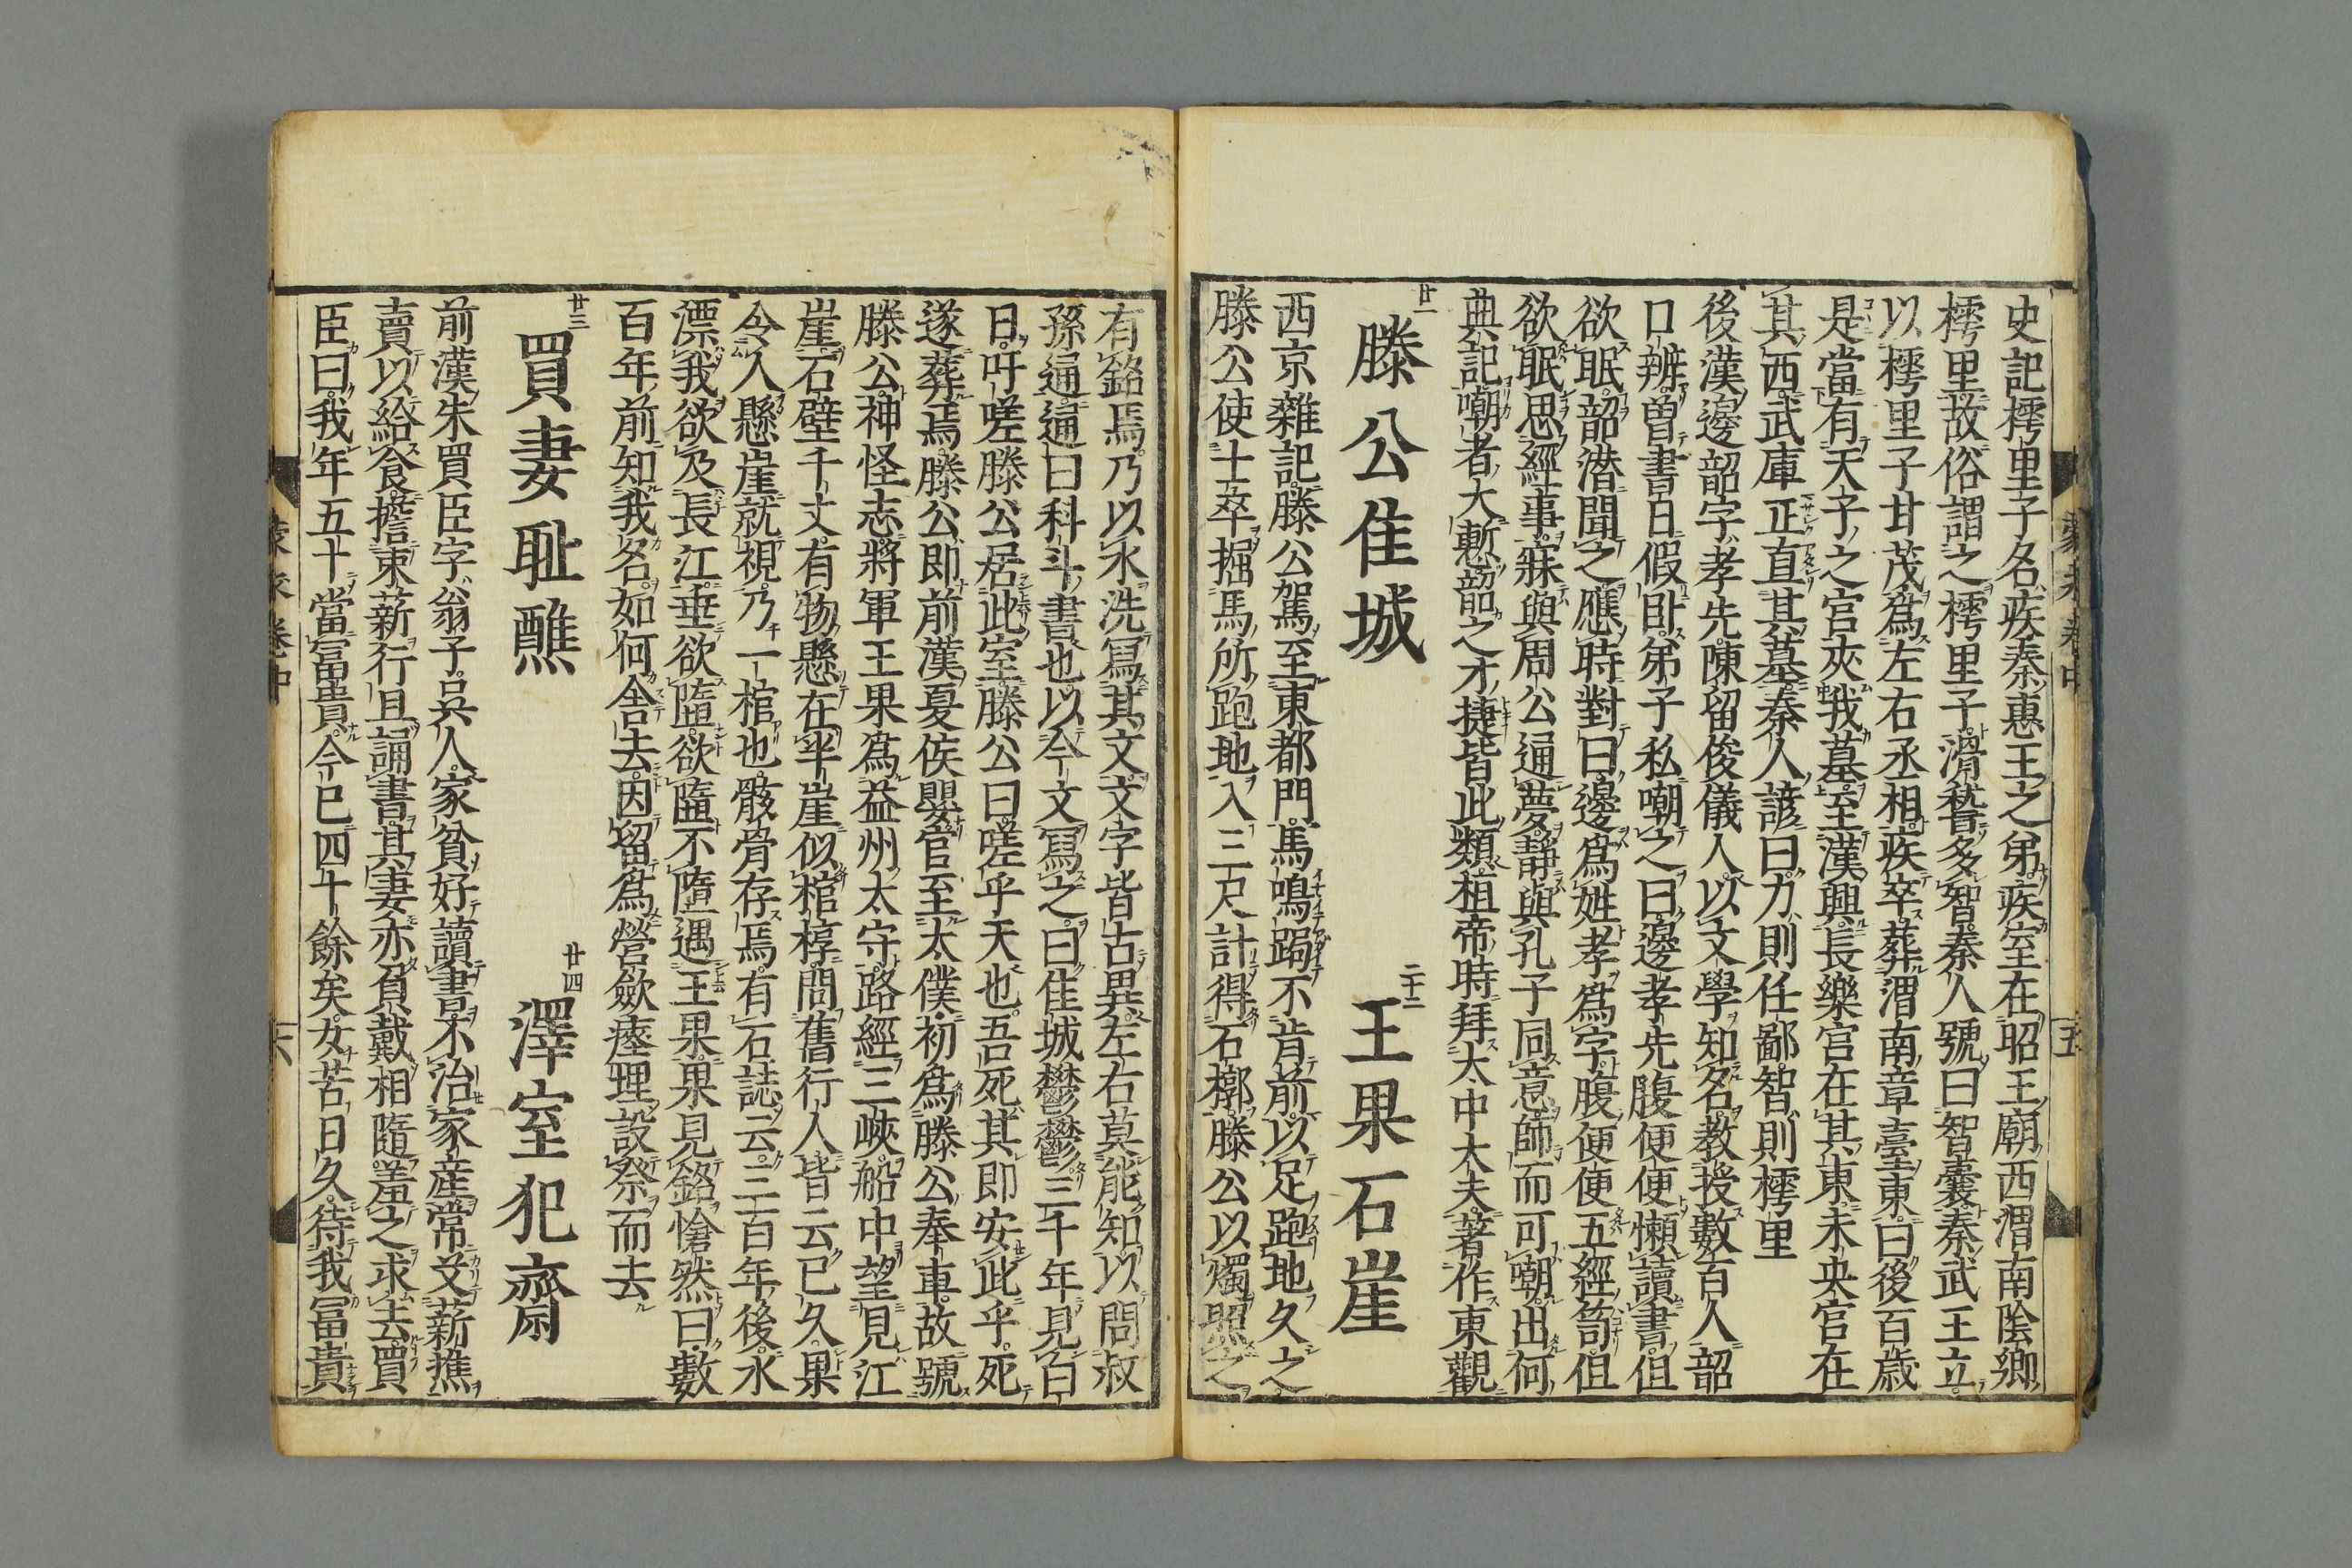 史記樗里子名疾秦惠王之弟疾室在昭王廟西渭南陰鄉
樗里故俗謂之樗里子滑稽多智秦人號曰智囊秦武王立
以樗里子甘茂爲左右丞相疾卒葬渭南章臺東曰後百歲
是當有天子之宮夾我墓至漢興長樂宮在其東未央宮在
其西武庫正直其墓秦人諺曰力則任鄙智則樗里
後漢邊韶字孝先陳留俊儀人以文學知名教授數百人韶
口辨曾晝日假臥弟子私嘲之曰邊孝先腹便便懶讀書但
欲眠韶潜聞之應時對曰邊爲姓孝爲字腹便便五經笥但
欲眠思經事寐與周公通夢靜與孔子同意師而可嘲出何
典記嘲者大慙韶之才捷皆此類桓帝時拜太中大夫著作東觀
廿一
滕公佳城
二十二
王果石崖
西京雜記滕公駕至東都門馬鳴跼不肯前以足跑地久之
滕公使士卒掘馬所跑地入三尺計得石槨滕公以燭照之
有銘焉乃以水洗寫其文文字皆古異左右莫能知以問叔
孫通通曰科斗書也以今文寫之曰佳城鬱鬱三千年見白
日吁嗟滕公居此室滕公曰嗟乎天也吾死其即安此乎死
遂葬焉滕公即前漢夏侯嬰官至太僕初爲滕公奉車故號
滕公神怪志將軍王果爲益州太守路經三峽船中望見江
崖石壁千丈有物懸在半崖似棺椁問舊行人皆云已久果
令人懸崖就視乃一棺也骸骨存焉有石誌云三百年後水
漂我欲及長江垂欲墮欲墮不墮遇王果果見銘愴然曰數
百年前知我名如何舍去因留爲營歛瘞埋設祭而去
廿三
買妻耻醮
廿四
澤室犯齋
前漢朱買臣字翁子吳人家貧好讀書不治家產常艾薪樵
賣以給食擔束薪行且誦書其妻亦負戴相隨羞之求去買
臣曰我年五十當富貴今已四十餘矣女苦日久待我冨貴